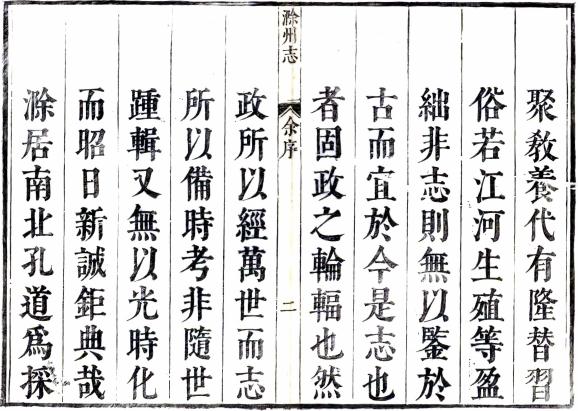 聚敎養代有隆替習
俗若江河生殖等盈
絀非志則無以鑒於
古而宜於今是志也
者固政之輪輻也然
滁州志
余序
二
政所以經萬世而志
所以備時考非隨世
踵輯又無以光時化
而昭日新誠鉅典哉
滁居南北孔道爲採